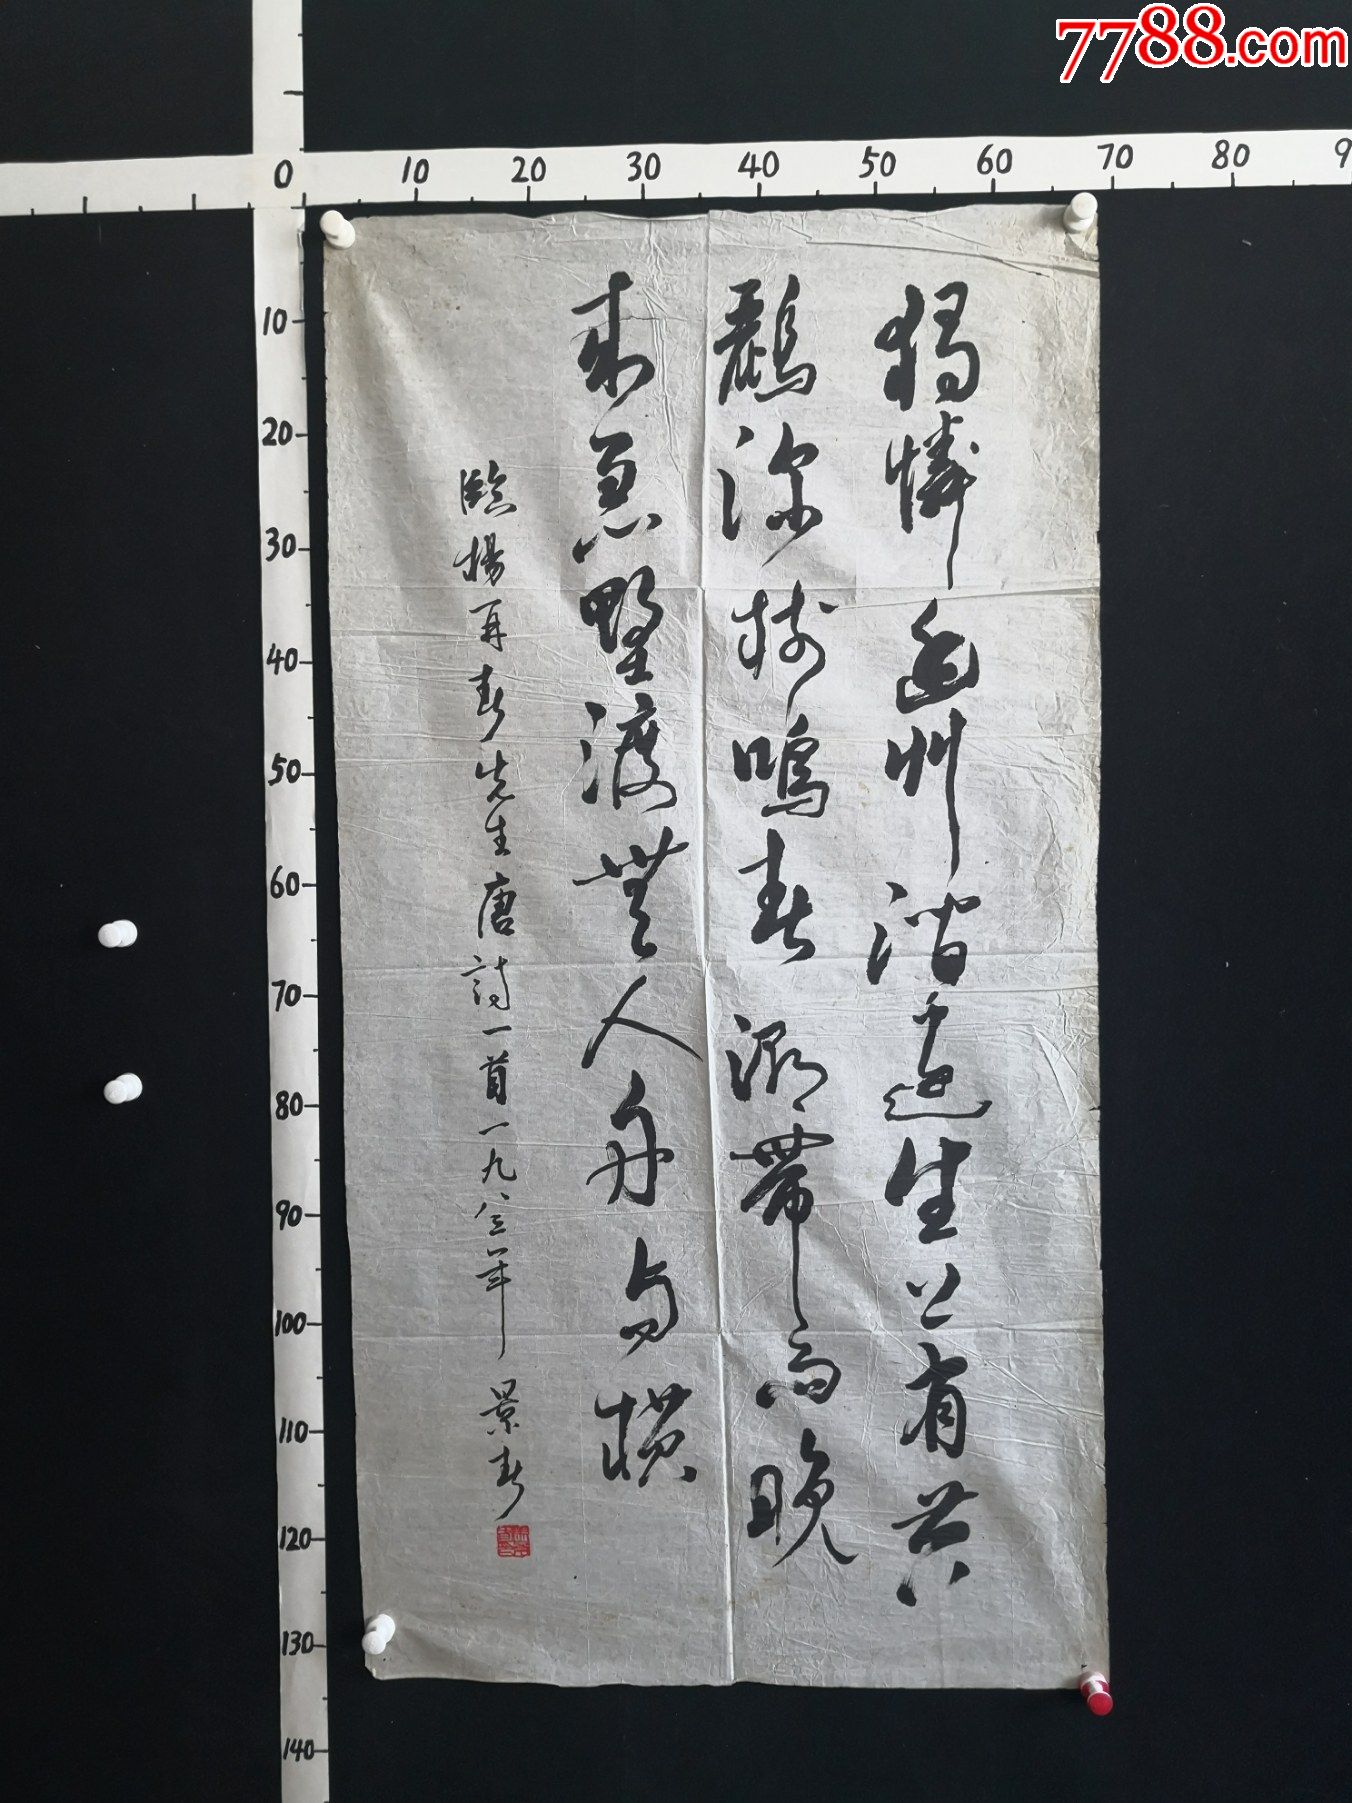 7788.com
0 10 20 30 40 50 60 70 80 9
10
20
30
40
50
60
70
80
90
100
110
120
130
140
獨憐幽艸澗邊生上有黄
鸝深树鳴春潮帶雨晚
来急墅渡無人舟自横
臨楊再春先生唐詩一首一九八三年 景春